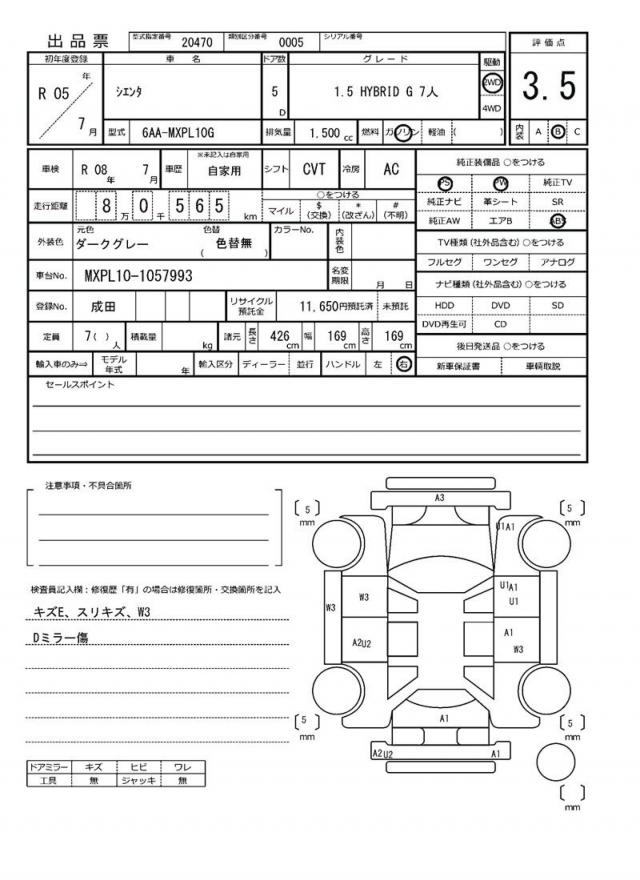 出品票 型式指定番号 20470 類別区分番号 0005 シリアル番号
初年度登録 車 名 ドア数 グレード 駆動 評価点
R 05 年 7 月 シエンタ 5 D 1.5 HYBRID G 7人 2WD 4WD 3.5
型式 6AA-MXPL10G 排気量 1.500 cc 燃料 ガソリン 軽油 ( ) 内装 A B C
車検 R 08 年 7 月 車歴 ※未記入は自家用 自家用 シフト CVT 冷房 AC
純正装備品 ○をつける
PS PW 純正TV
走行距離 8 万 0 千 5 6 5 km ○をつける
マイル $ (交換) * (改ざん) # (不明)
純正ナビ 革シート SR
純正AW エアB ABS
外装色 元色 ダークグレー 色替 ( 色替無 ) カラーNo. 内装色
TV種類 (社外品含む) ○をつける
フルセグ ワンセグ アナログ
車台No. MXPL10-1057993 名変期限 月 日
ナビ種類 (社外品含む) ○をつける
登録No. 成田 リサイクル預託金 11,650円預託済 未預託
HDD DVD SD
DVD再生可 CD
定員 7( ) 人 積載量 kg 諸元 長さ 426 cm 幅 169 cm 高さ 169 cm
後日発送品 ○をつける
輸入車のみ⇒ モデル年式 年 輸入区分 ディーラー 並行 ハンドル 左 右
新車保証書 車輌取説
セールスポイント
注意事項・不具合箇所
検査員記入欄：修復歴「有」の場合は修復箇所・交換箇所を記入
キズE、スリキズ、W3
Dミラー傷
ドアミラー キズ ヒビ ワレ
工具 無 ジャッキ 無
A3
5 mm
5 mm
U1A1
W3
W3
U1A1
U1
A2U2
A1
W3
5 mm
5 mm
A1
A2U2
A1
mm